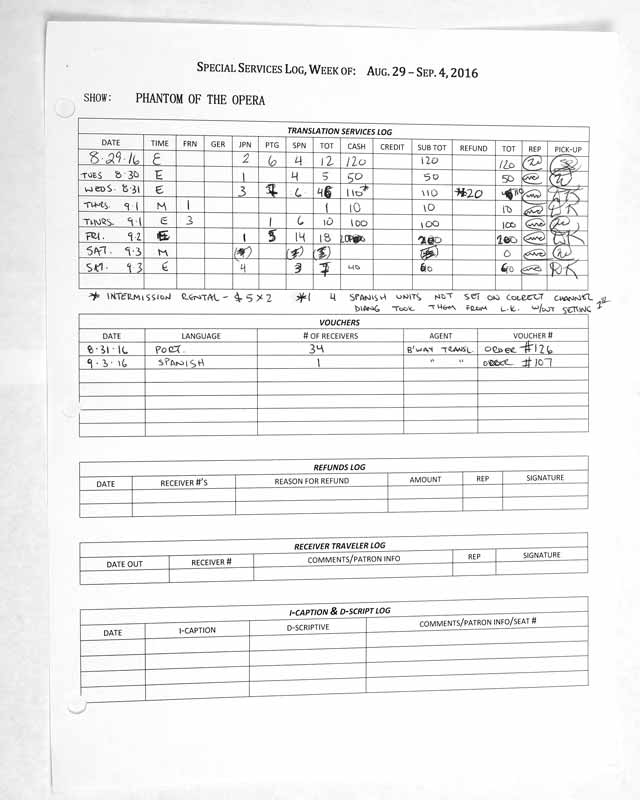 SPECIAL SERVICES LOG, WEEK OF: AUG. 29 – SEP. 4, 2016
SHOW: PHANTOM OF THE OPERA
TRANSLATION SERVICES LOG
DATE TIME FRN GER JPN PTG SPN TOT CASH CREDIT SUB TOT REFUND TOT REP PICK-UP
8-29-16 E 2 6 4 12 120 120 120
TUES 8-30 E 1 4 5 50 50 50
WEDS. 8-31 E 3 6 110* 110 *20
THURS. 9-1 M 1 1 10 10 10
THURS. 9-1 E 3 1 6 10 100 100 100
FRI. 9-2 E 1 14 18
SAT. 9-3 M 0
SAT. 9-3 E 4 3 7 60
* INTERMISSION RENTAL - $5 X 2 *1 4 SPANISH UNITS NOT SET ON CORRECT CHANNEL
TOOK THEM FROM L.R. W/OUT SETTING
VOUCHERS
DATE LANGUAGE # OF RECEIVERS AGENT VOUCHER #
8-31-16 PORT. 34 B'WAY TRANSL. ORDER #126
9-3-16 SPANISH 1 " " ORDER #107
REFUNDS LOG
DATE RECEIVER #'S REASON FOR REFUND AMOUNT REP SIGNATURE
RECEIVER TRAVELER LOG
DATE OUT RECEIVER # COMMENTS/PATRON INFO REP SIGNATURE
I-CAPTION & D-SCRIPT LOG
DATE I-CAPTION D-SCRIPTIVE COMMENTS/PATRON INFO/SEAT #